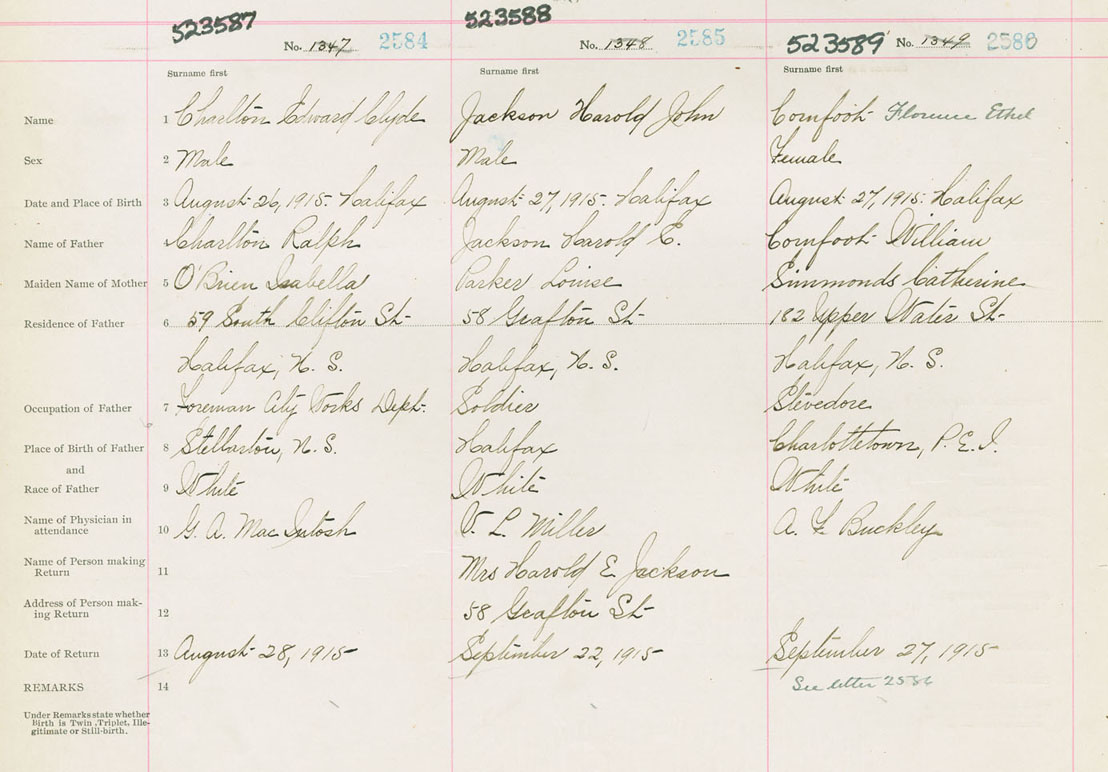 523587 523588
No. 1347 2584 No. 1348 2585 523589 No. 1349 2586
Surname first Surname first Surname first
Name 1 Charlton Edward Clyde Jackson Harold John Cornfoot Florence Ethel
Sex 2 Male Male Female
Date and Place of Birth 3 August 26, 1915. Halifax August 27, 1915. Halifax August 27, 1915. Halifax
Name of Father 4 Charlton Ralph Jackson Harold E. Cornfoot William
Maiden Name of Mother 5 O'Brien Isabella Parker Louise Simmonds Catherine
Residence of Father 6 59 South Clifton St 58 Grafton St 182 Upper Water St
Halifax, N. S. Halifax, N. S. Halifax, N. S.
Occupation of Father 7 Foreman City Works Dept. Soldier Stevedore
Place of Birth of Father 8 Stellarton, N. S. Halifax Charlottetown, P. E. I.
and
Race of Father 9 White White White
Name of Physician in
attendance 10 G. A. MacIntosh V. L. Miller A. F. Buckley
Name of Person making
Return 11 Mrs Harold E Jackson
Address of Person mak-
ing Return 12 58 Grafton St
Date of Return 13 August 28, 1915 September 22, 1915 September 27, 1915
REMARKS 14 See letter 2586
Under Remarks state whether
Birth is Twin, Triplet, Ille-
gitimate or Still-birth.